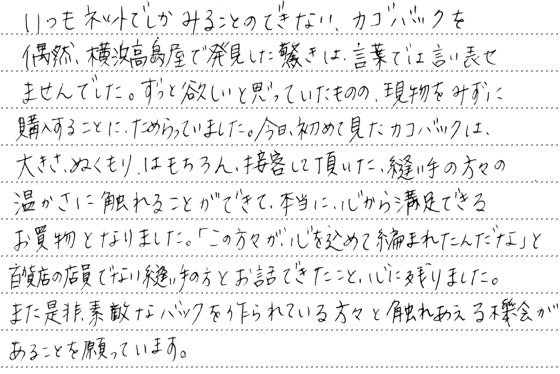 いつもネットでしかみることのできない、カゴバックを
偶然、横浜高島屋で発見した驚きは、言葉では言い表せ
ませんでした。ずっと欲しいと思っていたものの、現物をみずに
購入することに、ためらっていました。今日、初めて見たカコバックは、
大きさ、ぬくもり、はもちろん、接客して頂いた、縫い手の方々の
温かさに触れることができて、本当に、心から満足できる
お買物となりました。「この方々が、心を込めて編まれたんだな」と
百貨店の店員でない縫い手の方とお話できたこと、心に残りました。
また是非、素敵なバックを作られている方々と触れあえる機会が
あることを願っています。